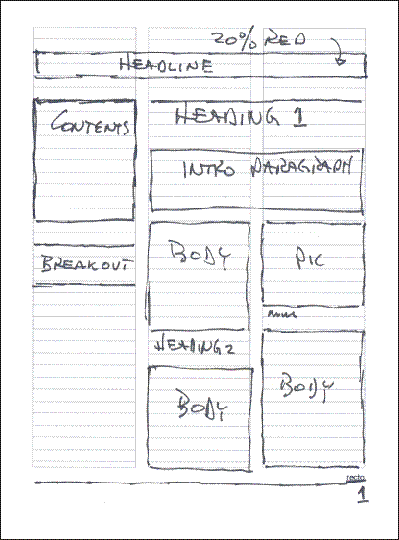 20% RED
HEADLINE
CONTENTS
HEADING 1
INTRO PARAGRAPH
BREAKOUT
BODY
PIC
HEADING 2
BODY
BODY
recto
1